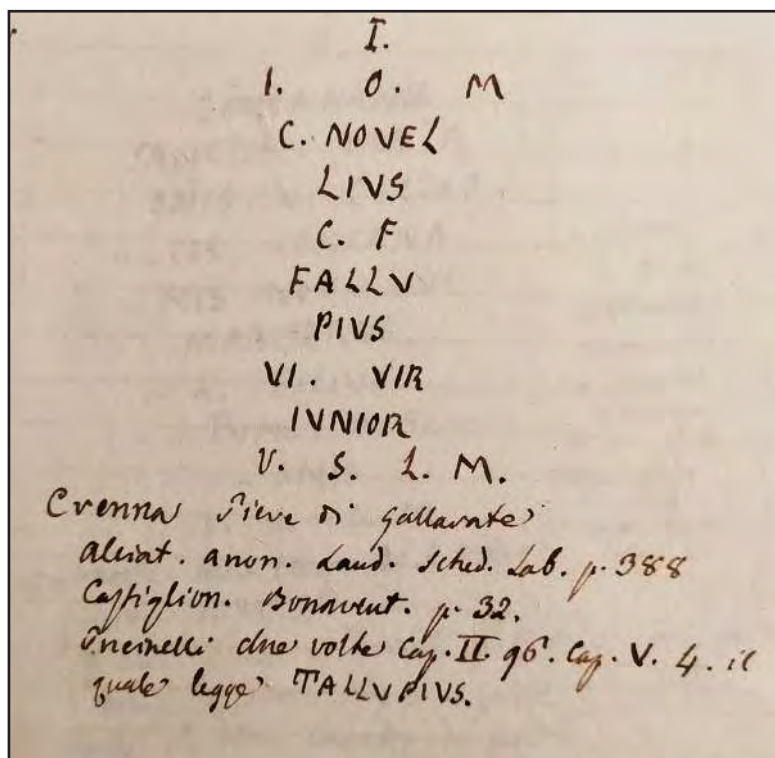 I.
I. O. M
C. NOVEL
LIVS
C. F
FALLV
PIVS
VI. VIR
IVNIOR
V. S. L. M.
Crenna Pieve di Gallarate
Alciat. anon. Laud. Sched. Lab. p. 388
Castiglion. Bonavent. p. 32.
Puccinelli due volte Cap. II. 96. Cap. V. 4. il
quale legge TALLVPIVS.